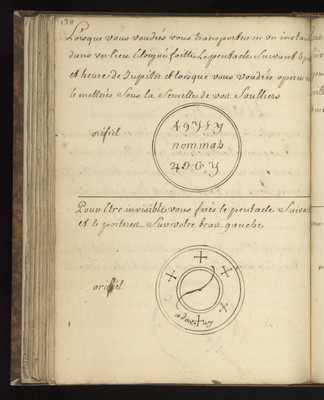 138
Lorsque vous voudrés vous transporter en un insta
dans un lieu Eloigné faittes Le pentacle Suivant
et heure de Jupiter et lorsque vous voudrés
le mettrés Sous la Semelle de vos Soulliers
orifiel
nommah
Pour Etre invisible vous ferés le pentacle Suivan
et le porterez Sur votre bras gauche
orifiel